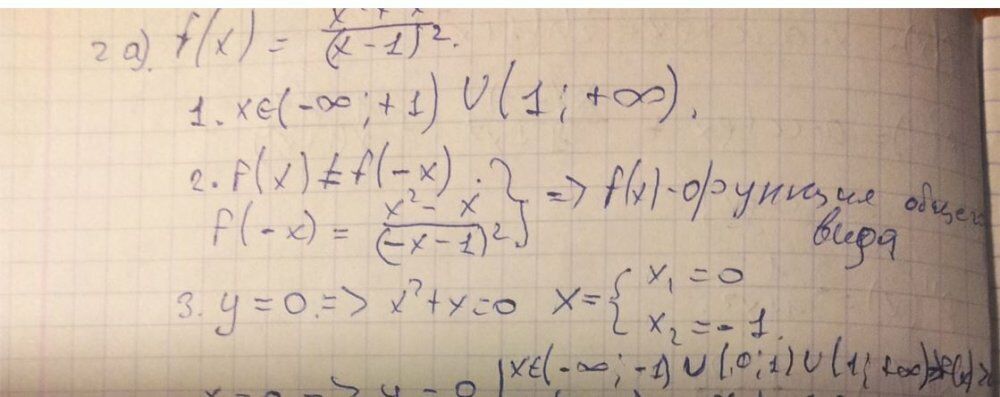 2 a). f(x) = x²+x/(x-1)².
1. x∈(-∞;+1) ∪ (1;+∞).
2. f(x) ≠ f(-x).
f(-x) = x²- x/(-x-1)² } => f(x)-функция общего вида
3. y=0.=> x²+x=0 x={ x₁=0
x₂=-1.
x=0 => y=0 | x∈(-∞;-1) ∪ (0;1) ∪ (1;+∞)=>f(x)>